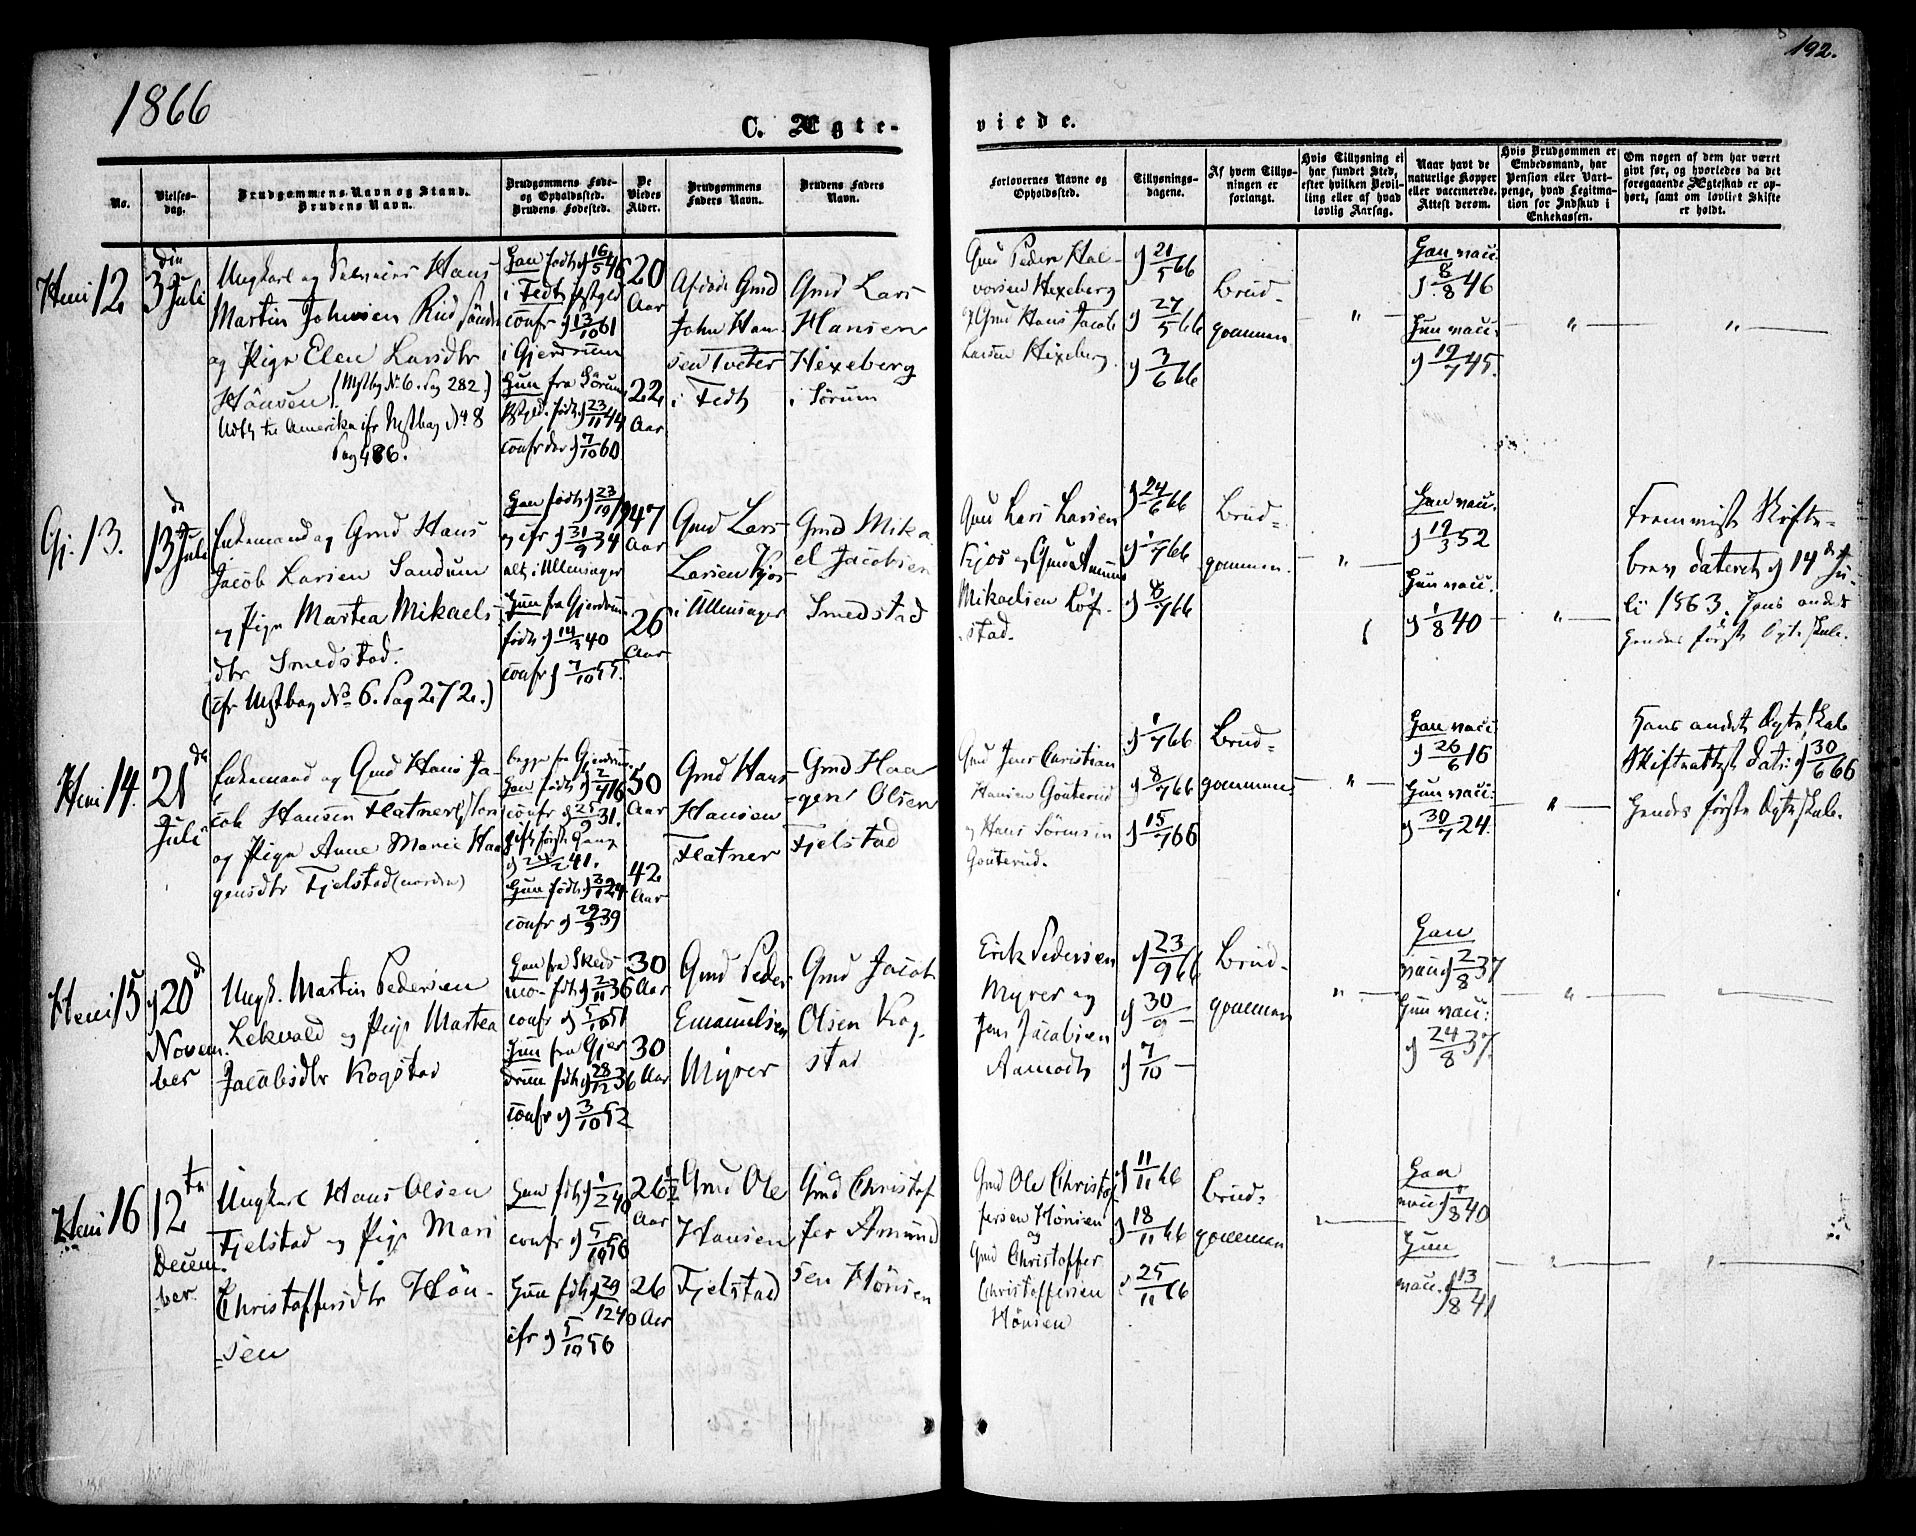 192.
1866
C. Ægte-
viede.
No.
Vielses-
dag.
Brudgommens Navn og Stand.
Brudens Navn.
Brudgommens Føde-
og Opholdssted.
Brudens Fødested.
De
Viedes
Alder.
Brudgommens
Faders Navn.
Brudens Faders
Navn.
Forlovernes Navne og
Opholdssted.
Tillysnings-
dagene.
Af hvem Tillys-
ningen er
forlangt.
Hvis Tillysning ei
har fundet Sted,
efter hvilken Bevil-
ling eller af hvad
lovlig Aarsag.
Naar havt de
naturlige Kopper
eller vaccinerede.
Attest derom.
Hvis Brudgommen er
Embedsmand, har
Pension eller Vart-
penge, hvad Legitima-
tion for Indskud i
Enkekassen.
Om nogen af dem har været
givt før, og hvorledes da det
foregaaende Ægteskab er op-
hørt, samt om lovligt Skifte
er holdt.
Heni 12
den
3 Juli
Ungkarl og Hans
Martin Johnsen Rud søndre
og Pige Elen Larsdtr
Hönsen. (Mstbog No 6. Pag 282.)
Udfl til Amerika cfr Mstbog No 8
Pag 486.
Han født d 16/5 46
i Fedt Pstgld
confr d 13/10 61
i Gjerdrum
Hun fra Sörum
Pstgld. født d 23/11 44
confr der d 7/10 60
20
Aar
22
Aar
Afdöde Gmd
John Han-
sen Tveter
i Fedt
Gmd Lars
Hansen
Hexeberg
i Sörum
Gmd Peder Hal-
vorsen Hexeberg
og Gmd Hans Jacob
Larsen Hexeberg.
d 21/5 66
d 27/5 66
d 3/6 66
Brud-
gommen
"
Han vacc:
d. 8/8 46
Hun vacc:
d 19/7 45.
"
"
Gj. 13.
13de Juli
Enkemand og Gmd Hans
Jacob Larsen Sandum
og Pige Martea Mikaels-
dtr Smedstad.
(cfr Mstbog No 6. Pag 272.)
Han født d 23/10 19
og cfr d 31/9 34
alt i Ullensager
Hun fra Gjerdrum
født d 14/3 40
confr d 7/10 55.
47
Aar
26
Aar
Gmd Lars
Larsen Kjos
i Ullensager
Gmd Mika-
el Jacobsen
Smedstad
Gmd Lars Larsen
Kjos og Gmd Amund
Mikaelsen Löf-
stad.
d 24/6 66
d 1/7 66
d 8/7 66
Brud-
gommen.
"
Han vacc.
d 19/3 52
Hun vacc.
d 1/8 40
"
Fremvist Skifte-
brev dateret d 14de Ju-
li 1863. Hans andet
Hendes förste Ægteskab.
Heni 14.
21de
Juli
Enkemand og Gmd Hans Ja-
cob Hansen Flatner
og Pige Anne Marie Haa-
gensdtr Fjelstad (nordre)
begge fra Gjerdrum
Han født d 2/7 16
confr d 25/9 31.
gift förste Gang
41.
Hun født d 3/1 24
confr d 29/9 39
50
Aar
42
Aar
Gmd Hans
Hansen
Flatner
Gmd Haa-
gen Olsen
Fjelstad
Gmd Jens Christian
Hansen Gouterud
og Hans Sörensen
Gouterud.
d 1/7 66
d 8/7 66
d 15/7 66
Brud-
gommen.
"
Han vacc:
d 26/6 16
Hun vacc:
d 30/7 24.
"
Hans andet Ægteskab
Skifteattest Dat: d 30/6 66
Hendes förste Ægteskab.
Heni 15
d 20de
Novem-
ber
Ungk. Martin Pedersen
Lekvold og Pige Martea
Jacobsdtr Kogstad
Han fra Skeds-
mo - fdt d 2/11 36
confr d 5/10 51
Hun fra Gjer-
drum fdt d 28/12 36
confr d 3/10 52
30
Aar
30
Aar
Gmd Peder
Emanuelsen
Myrer
Gmd Jacob
Olsen Kog-
stad
Erik Pedersen
Myrer og
Jens Jacobsen
Aamodt
d 23/9 66
d 30/9 -
d 7/10 -
Brud-
gommen
"
Han
vacc d 2/8 37
Hun vacc:
d 24/8 37.
"
"
Heni 16
12te
Decem-
ber
Ungkarl Hans Olsen
Fjelstad og Pige Mari
Christoffersdtr Hön-
sen
Han fdt d 1/2 40
confr d 5/10 56
Hun fdt d 29/12 40
cfr d 5/10 56
26 1/2
Aar
26
Aar
Gmd Ole
Hansen
Fjelstad
Gmd Christof-
fer Amund-
sen Hönsen
Gmd Ole Christof-
fersen Hönsen
og
Gmd Christoffer
Christoffersen
Hönsen
d 11/11 66
d 18/11 66
d 25/11 66
Brud-
gommen
"
Han
vacc d 1/8 40
Hun
vacc. d 13/8 41
"
"